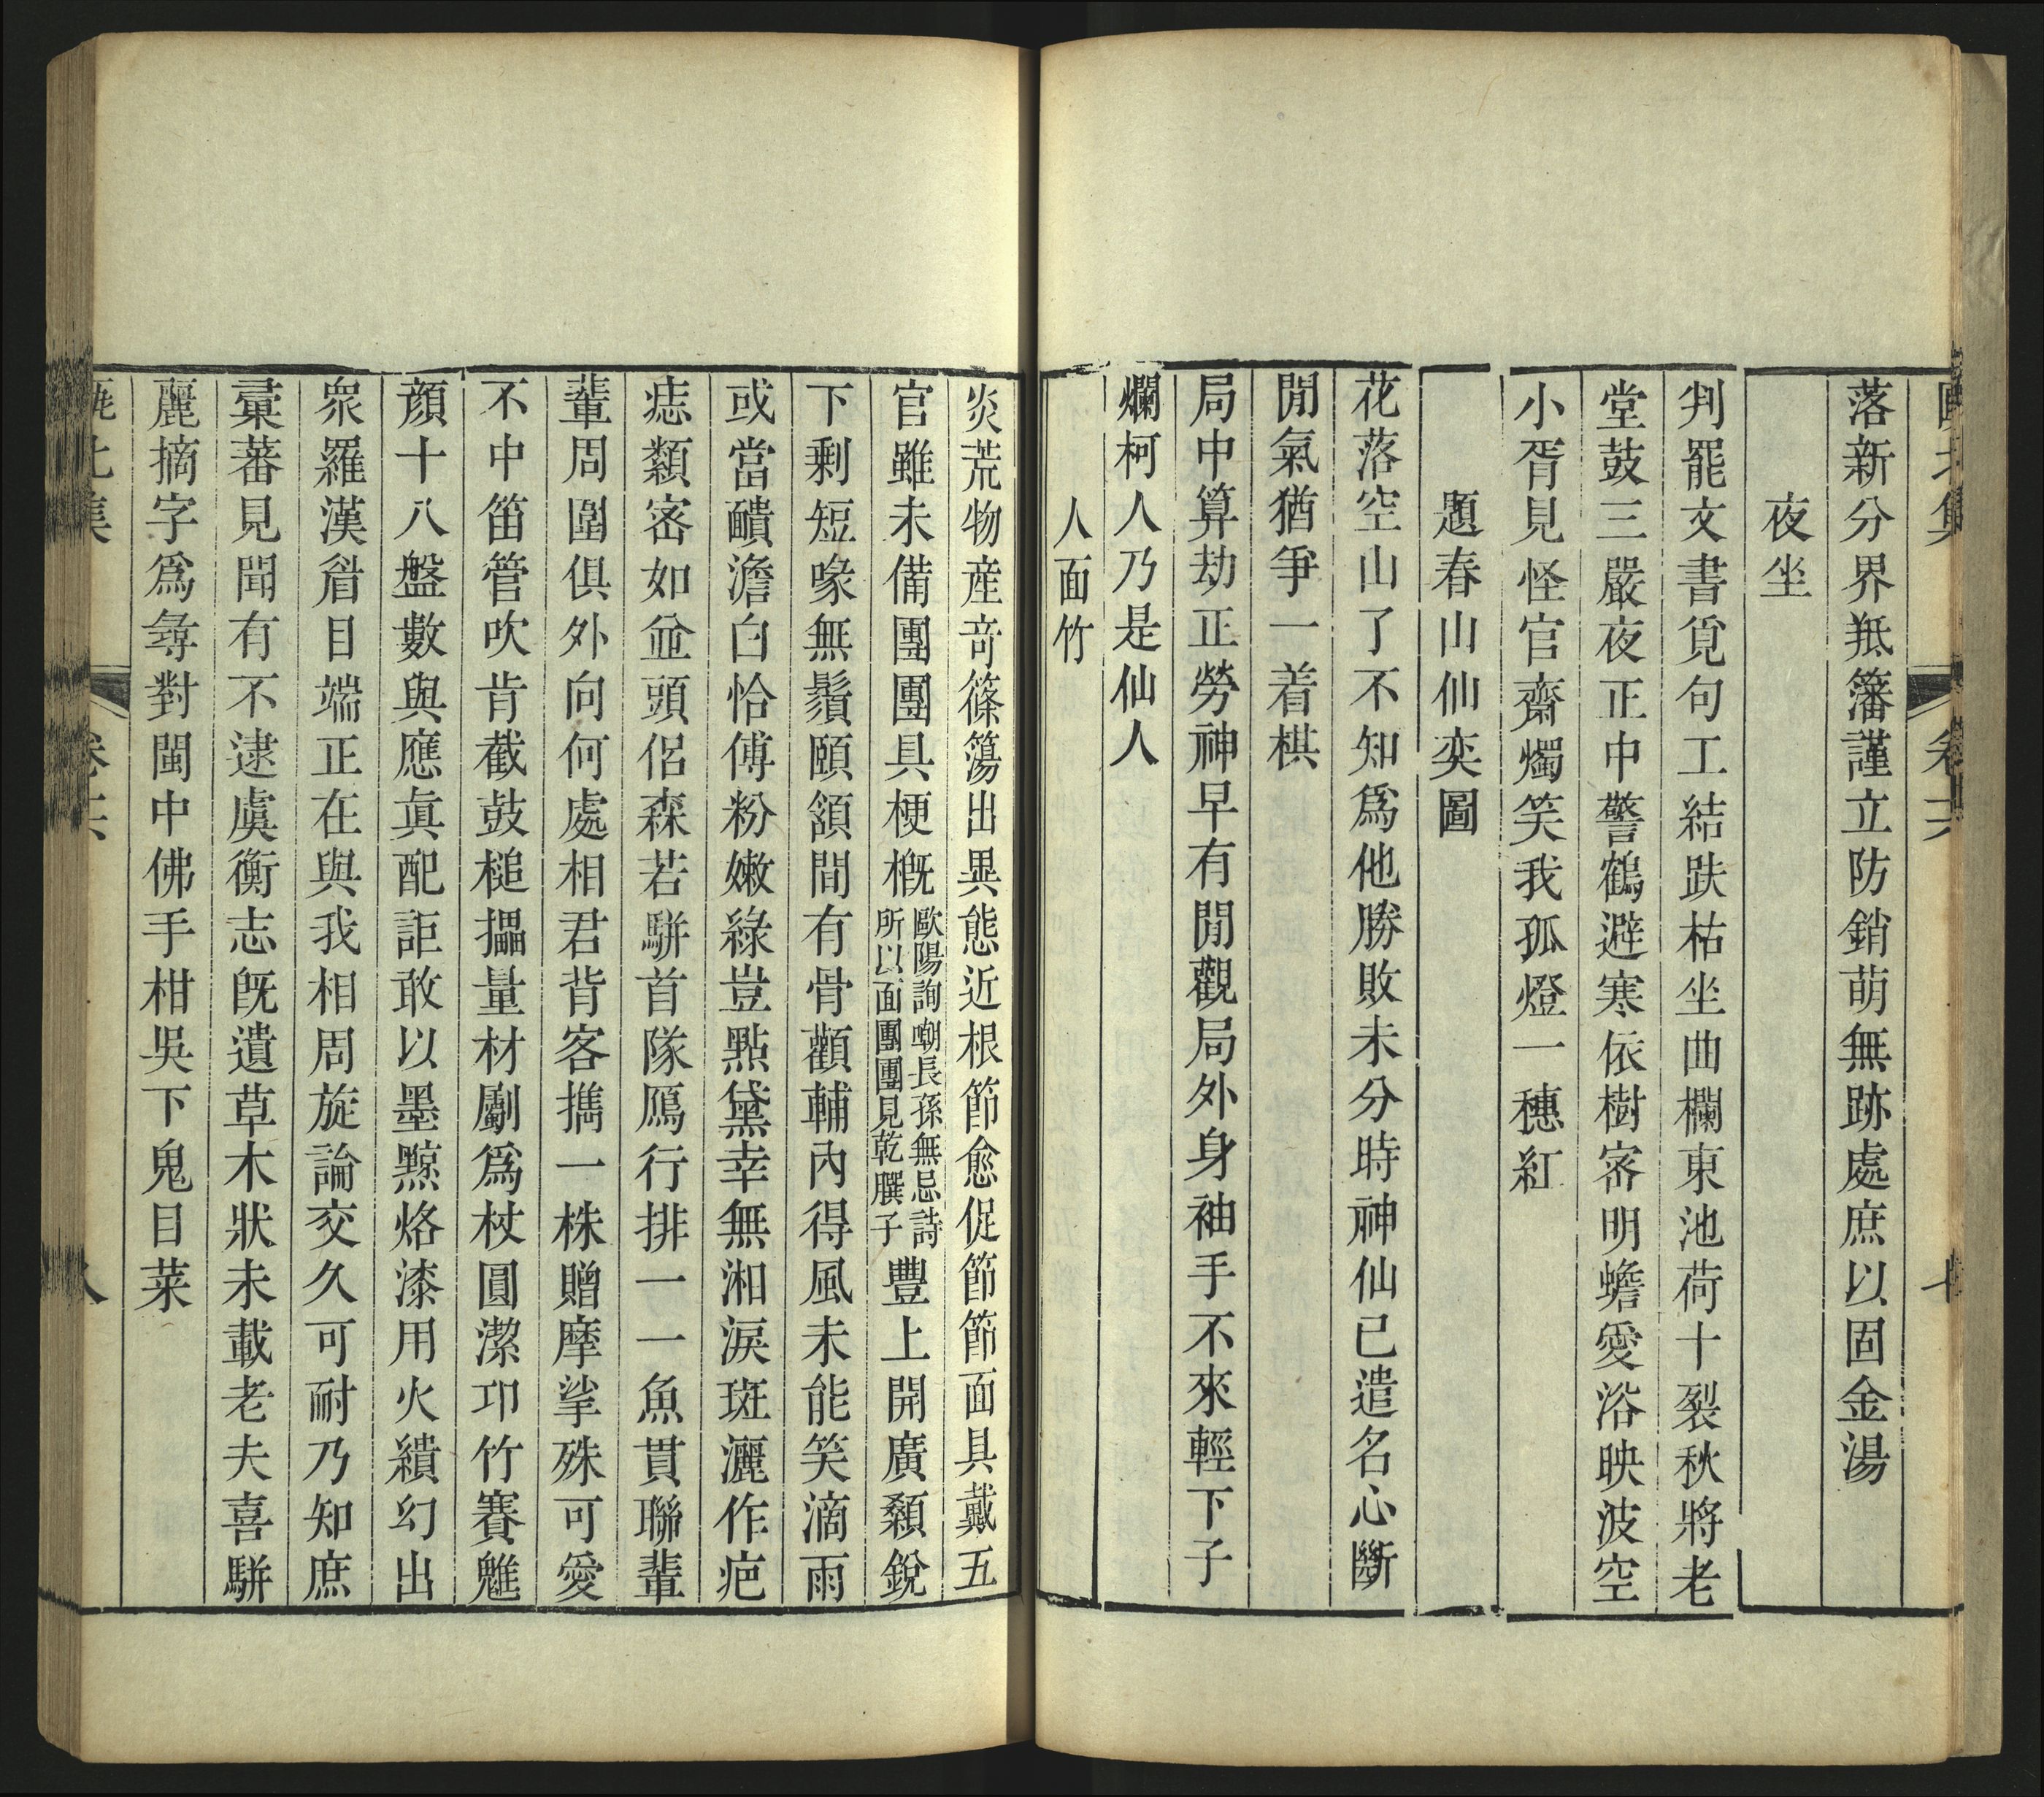 落新分界羝籓謹立防銷萌無跡處庶以固金湯
夜坐
判罷文書覓句工結趺枯坐曲欄東池荷十裂秋將老
堂鼓三嚴夜正中警鶴避寒依樹密明蟾愛浴映波空
小胥見怪官齋燭笑我孤燈一穗紅
題春山仙奕圖
花落空山了不知爲他勝敗未分時神仙已遣名心斷
閒氣猶爭一着棋
局中算劫正勞神早有閒觀局外身袖手不來輕下子
爛柯人乃是仙人
人面竹
炎荒物産竒篠簜出異態近根節愈促節節面具戴五
官雖未備團團具梗概歐陽詢嘲長孫無忌詩所以面團團見乾䐑子豐上開廣顙銳
下剩短喙無鬚頤頷間有骨顴輔內得風未能笑滴雨
或當靧澹白恰傅粉嫩綠豈點黛幸無湘淚斑灑作疤
痣纇密如並頭侶森若駢首隊鴈行排一一魚貫聯輩
輩周圍俱外向何處相君背客攜一株贈摩挲殊可愛
不中笛管吹肯截鼓槌攂量材劚爲杖圓潔卭竹賽魋
顏十八盤數與應眞配詎敢以墨黥烙漆用火繢幻出
衆羅漢眉目端正在與我相周旋論交久可耐乃知庶
彚蕃見聞有不逮虞衡志旣遺草木狀未載老夫喜駢
麗摘字爲尋對閩中佛手柑吳下鬼目菜